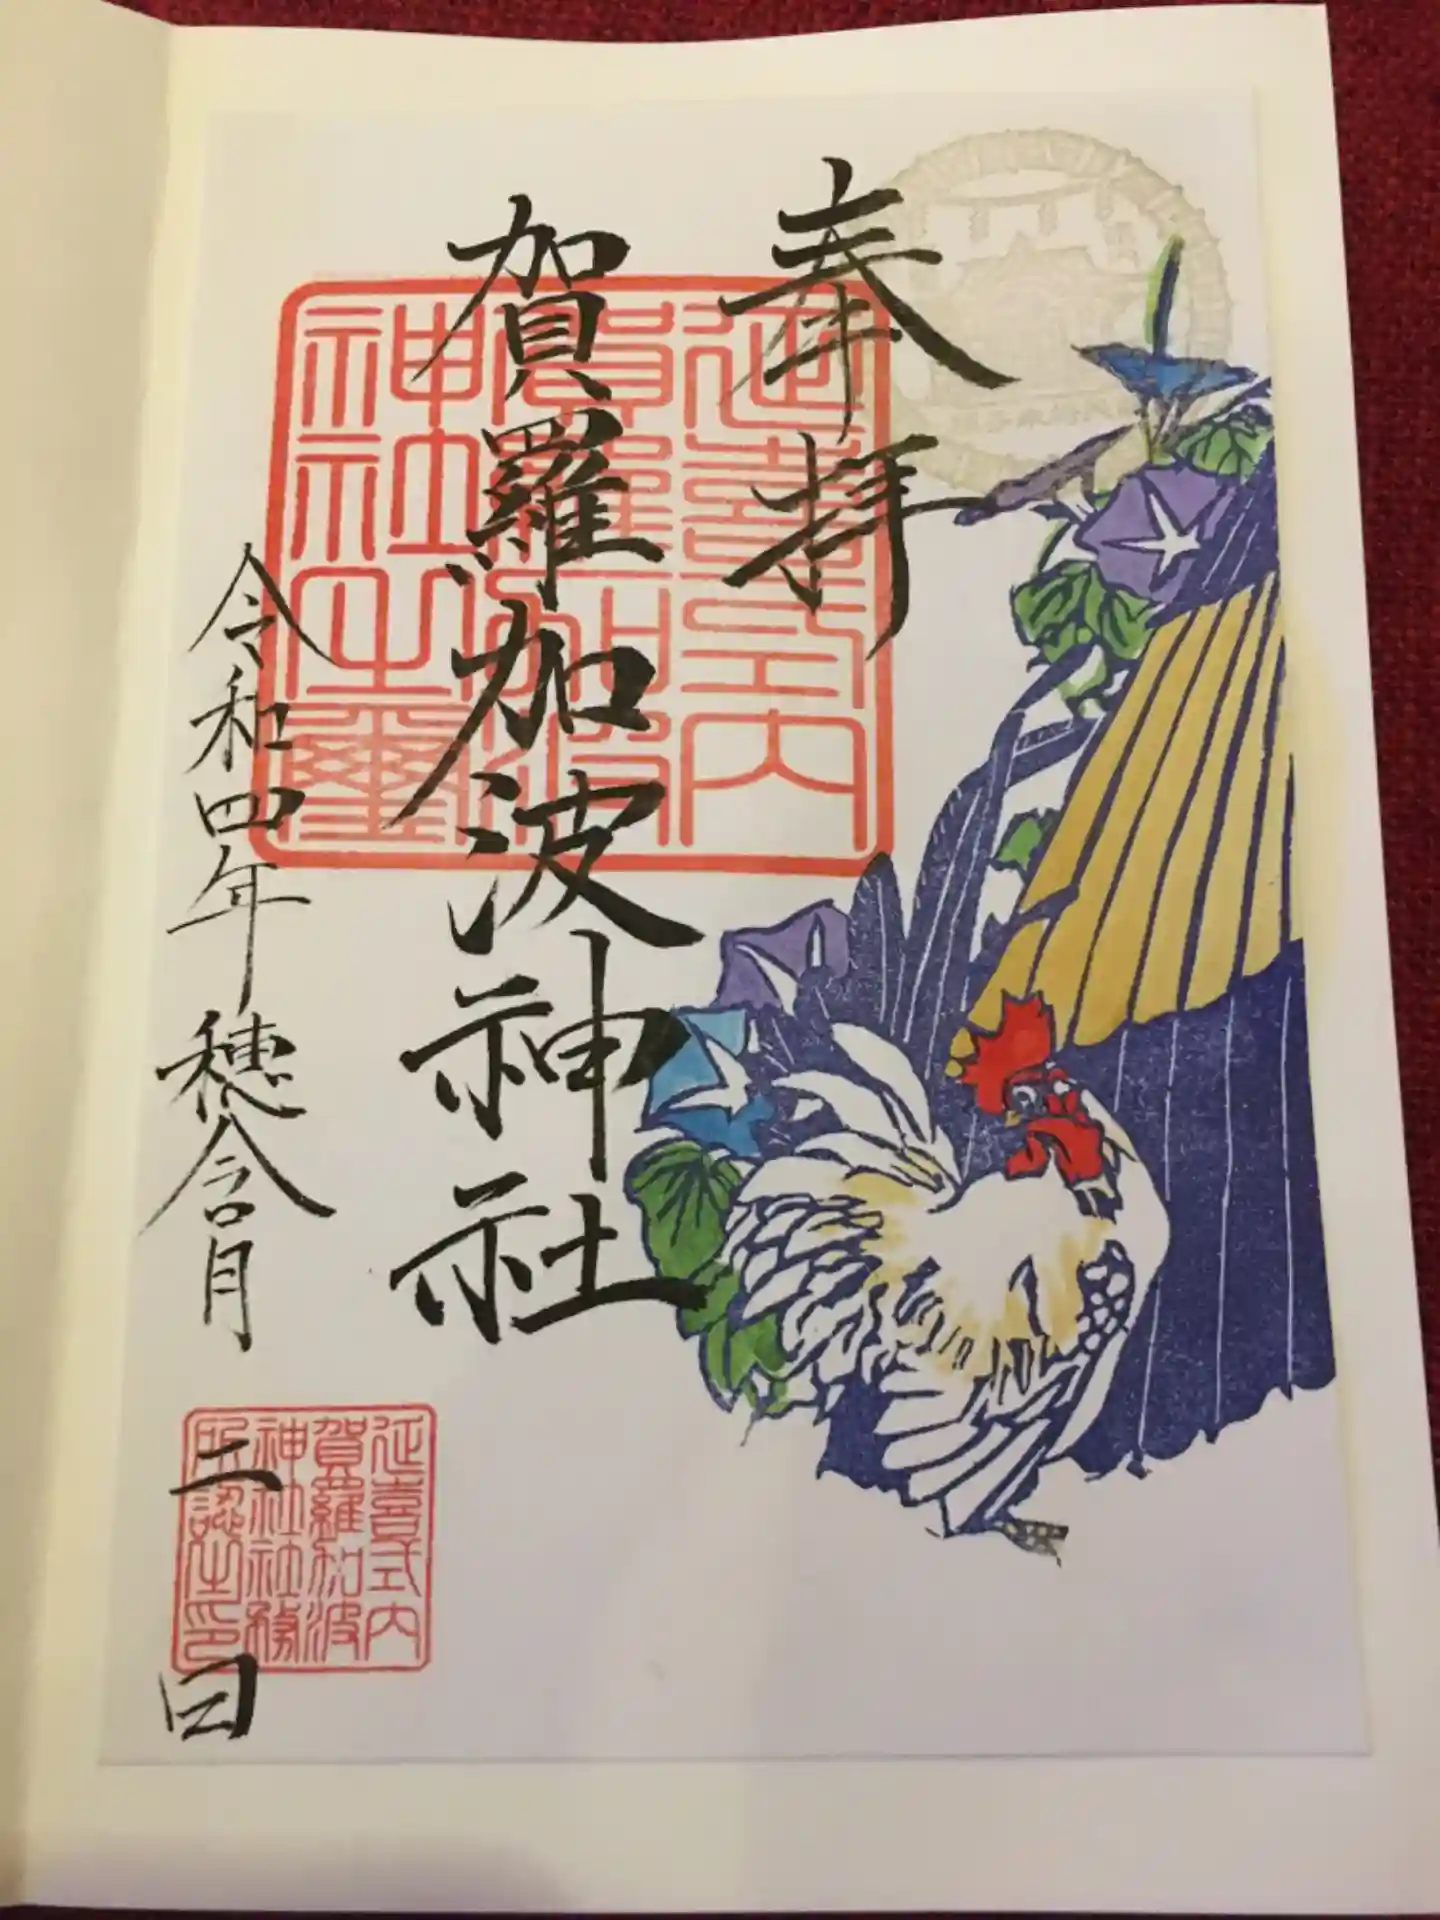 奉拝
延喜式内
賀羅加波
神社之璽
賀羅加波神社
令和四年 穂含月 二日
延喜式内
賀羅加波
神社社務
所認之印